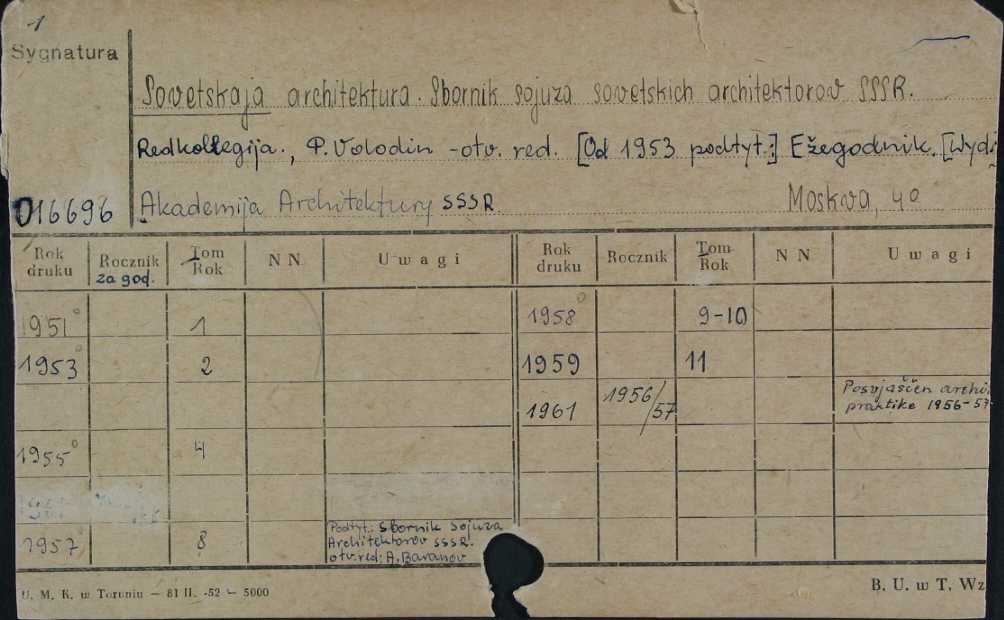 1
Sygnatura
Sovetskaja architektura. Sbornik sojuza sovetskich architektorov SSSR.
Redkollegija., P. Volodin - otv. red. [Od 1953 podtyt.:] Ežegodnik. [Wyd.:
016696 Akademija Architektury SSSR Moskva, 4°
Rok druku Rocznik za god. Tom Rok NN. Uwagi Rok druku Rocznik Tom Rok NN Uwagi
1951° 1 1958° 9-10
1953° 2 1959 11
1961 1956/57 Posvjaščen archi. praktike 1956-57
1955° 4
1957 8 Podtyt.: Sbornik Sojuza Architektorov SSSR. otv. red: A. Baranov
U. M. K. w Toruniu – 81 II. -52 – 5000 B. U. w T. Wz